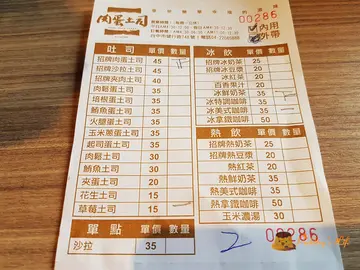 肉蛋土司
00286
外帶
土司 單價 數量
招牌肉蛋土司 45
招牌沙拉土司 45
招牌夾肉土司 40
肉鬆蛋土司 35
培根蛋土司 35
鮪魚蛋土司 35
火腿蛋土司 35
玉米蛋土司 35
起司蛋土司 35
肉鬆土司 30
鮪魚土司 30
夾蛋土司 20
花生土司 15
草莓土司 15
單點 單價 數量
沙拉 35
冰飲 單價 數量
招牌冰奶茶 25
招牌冰豆漿 20
冰紅茶 20
百香果汁 20
冰鮮奶茶 35
冰特調咖啡 35
冰美式咖啡 35
冰拿鐵咖啡 50
熱飲 單價 數量
招牌熱奶茶 25
招牌熱豆漿 20
熱紅茶 20
熱鮮奶茶 35
熱美式咖啡 35
熱拿鐵咖啡 50
玉米濃湯 30
2
00286